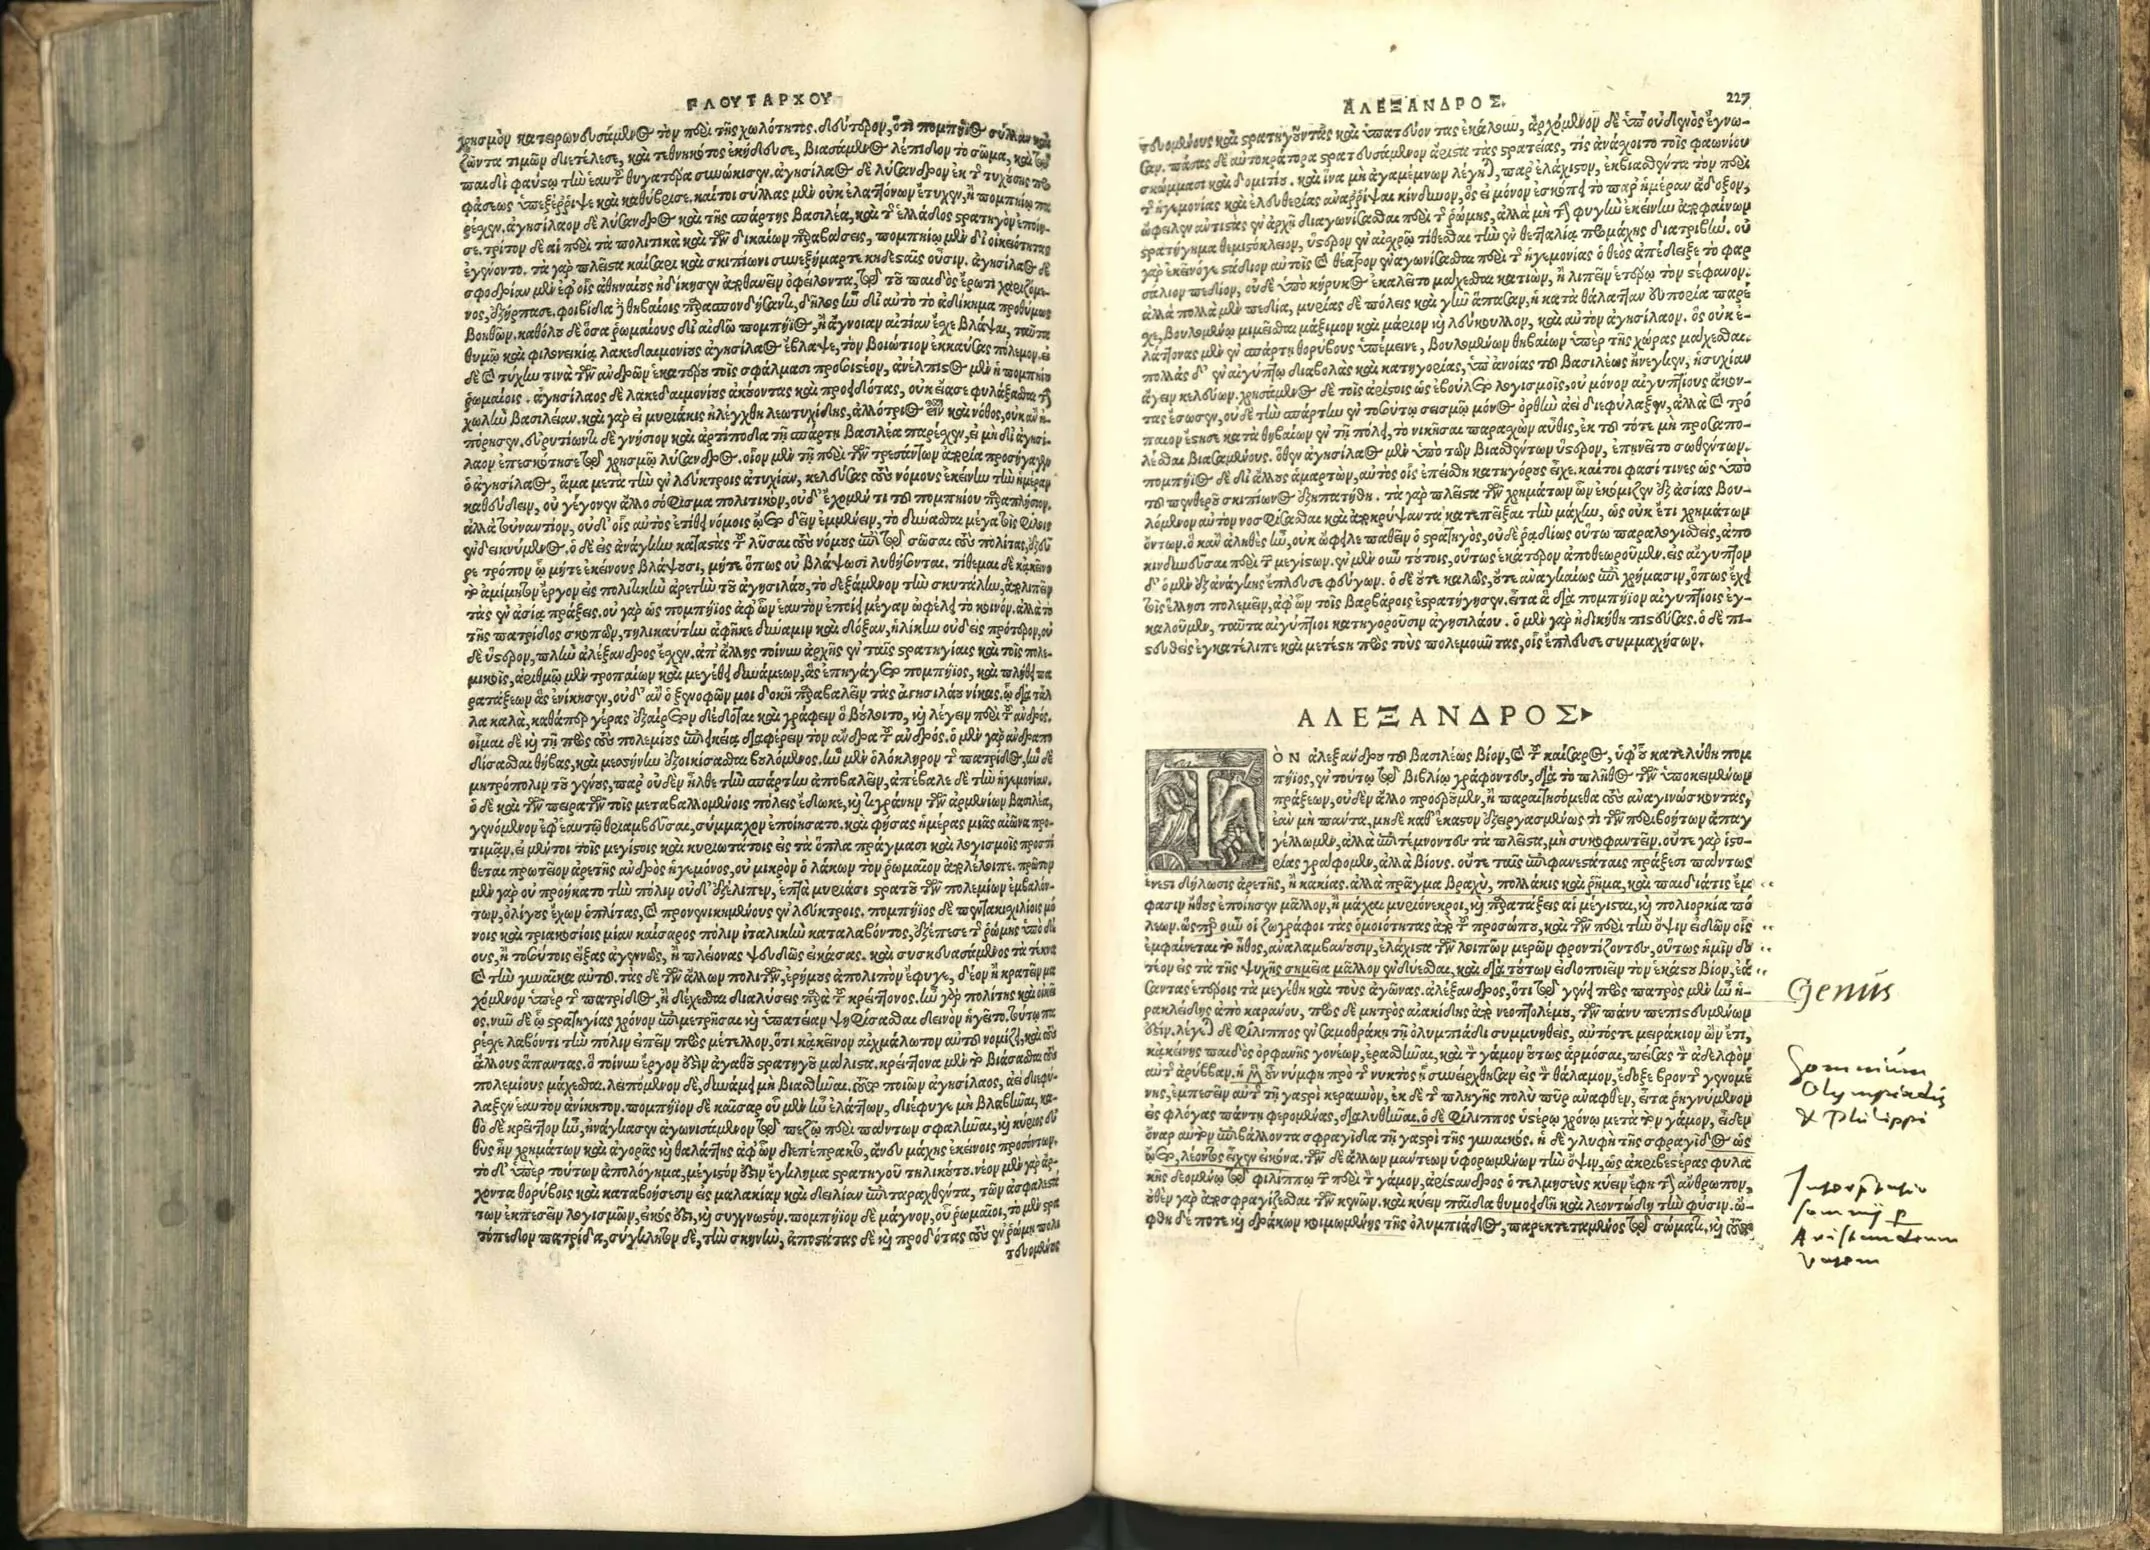 ΠΛΟΥΤΑΡΧΟΥ
χρησμὸν κατειρωνευσάμενος τὸν περὶ τῆς χωλότητος. δεύτερον, ὅτι πομπήϊος σύλλαν καὶ
ζῶντα τιμῶν διετέλεσε, καὶ τεθνηκότος ἐκήδευσε, βιασάμενος λέπιδον τὸ σῶμα, καὶ τῷ
παιδὶ φαύστῳ τὴν ἑαυτοῦ θυγατέρα συνώκισεν. ἀγησίλαος δὲ λύσανδρον ἐκ τῆς τυχούσης προ
φάσεως ὑπεξέρριψε καὶ καθύβρισε. καίτοι σύλλας μὲν οὐκ ἐλαττόνων ἔτυχεν, ἢ πομπηΐῳ πα
ρέχεν. ἀγησίλαον δὲ λύσανδρος καὶ τῆς σπάρτης βασιλέα, καὶ τῆς ἑλλάδος στρατηγὸν ἐποίη-
σε. τρίτον δὲ αἱ περὶ τὰ πολιτικὰ καὶ τῶν δικαίων παραβάσεις, πομπηίῳ μὲν δι' οἰκειότητας
ἐγένοντο. τὰ γὰρ πλεῖστα καίσαρι καὶ σκιπίωνι συνεξήμαρτε κηδεσταῖς οὖσιν. ἀγησίλαος δὲ
σφοδρίαν μὲν ἐφ' οἷς ἀθηναίους ἠδίκησεν ἀποθανεῖν ὀφείλοντα, τῷ τοῦ παιδὸς ἔρωτι χαριζόμε-
νος, ἐξήρπασε. φοιβίδα δὲ θηβαίοις παρασπονδήσαντι, δῆλος ἦν δι' αὐτὸ τὸ ἀδίκημα προθύμως
βοηθῶν. καθόλου δὲ ὅσα ῥωμαίους δι' αἰδῶ πομπήϊος, ἢ ἄγνοιαν αἰτίαν ἔσχε βλάψαι, ταῦτα
θυμῷ καὶ φιλονεικίᾳ λακεδαιμονίους ἀγησίλαος ἔβλαψε, τὸν βοιώτιον ἐκκαύσας πόλεμον. εἰ
δὲ καὶ τύχην τινὰ τῶν ἀνδρῶν ἑκατέρου τοῖς σφάλμασι προσθετέον, ἀνέλπιστος μὲν ἡ πομπηΐου
ῥωμαίοις. ἀγησίλαος δὲ λακεδαιμονίους ἀκούοντας καὶ προειδότας, οὐκ εἴασε φυλάξασθαι τὴν
χωλὴν βασιλείαν. καὶ γὰρ εἰ μυριάκις ἠλέγχθη λεωτυχίδης, ἀλλότριος εἶναι καὶ νόθος, οὐκ ἂν ἠ-
πόρησεν. εὐρυτίωντι δὲ γνήσιον καὶ ἀρτίποδα τῇ σπάρτῃ βασιλέα παρέχειν, εἰ μὴ δι' ἀγησί-
λαον ἐπεσκότησε τῷ χρησμῷ λύσανδρος. οἷον μὲν τῇ περὶ τῶν τρεσάντων ἀπορίᾳ προσήγαγεν
ὁ ἀγησίλαος, ἅμα μετὰ τὴν ἐν λεύκτροις ἀτυχίαν, κελεύσας τοὺς νόμους ἐκείνην τὴν ἡμέραν
καθεύδειν, οὐ γέγονεν ἄλλο σόφισμα πολιτικόν, οὐδ' ἔχομέν τι τοῦ πομπηίου παραπλήσιον.
ἀλλὰ τοὐναντίον, οὐδ' οἷς αὐτὸς ἐτίθει νόμοις ᾤετο δεῖν ἐμμένειν, τὸ δύνασθαι μέγα τοῖς φίλοις
ἐνδεικνύμενος. ὁ δὲ εἰς ἀνάγκην καταστὰς τοῦ λῦσαι τοὺς νόμους ἐπὶ τῷ σῶσαι τοὺς πολίτας, ἐξεῦ
ρε τρόπον ᾧ μήτε ἐκείνους βλάψουσι, μήτε ὅπως οὐ βλάψωσι λυθήσονται. τίθεμαι δὲ κἀκεῖνο
τὸ ἀμίμητον ἔργον εἰς πολιτικὴν ἀρετὴν τοῦ ἀγησιλάου, τὸ δεξάμενον τὴν σκυτάλην, ἀπολιπεῖν
τὰς ἐν ἀσίᾳ πράξεις. οὐ γὰρ ὡς πομπήϊος ἀφ' ὧν ἑαυτὸν ἐποίει μέγαν ὠφέλει τὸ κοινόν. ἀλλὰ τὸ
τῆς πατρίδος σκοπῶν, τηλικαύτην ἀφῆκε δύναμιν καὶ δόξαν, ἡλίκην οὐδεὶς πρότερον, οὐ
δὲ ὕστερον, πλὴν ἀλέξανδρος ἔσχεν. ἀπ' ἄλλης τοίνυν ἀρχῆς ἐν ταῖς στρατηγίαις καὶ τοῖς πολε-
μικοῖς, ἀριθμῷ μὲν τροπαίων καὶ μεγέθει δυνάμεων, ἃς ἐπηγάγετο πομπήϊος, καὶ πλήθει πα
ρατάξεων ἃς ἐνίκησεν, οὐδ' ἂν ὁ ξενοφῶν μοι δοκῇ παραβαλεῖν τὰς ἀγησιλάου νίκας. ᾧ διὰ τἄλ
λα καλὰ, καθάπερ γέρας ἐξαίρετον δέδοται καὶ γράφειν ὃ βούλοιτο, καὶ λέγειν περὶ τοῦ ἀνδρός.
οἶμαι δὲ καὶ τῇ πρὸς τοὺς πολεμίους ἐπιεικείᾳ διαφέρειν τὸν ἄνδρα τοῦ ἀνδρός. ὁ μὲν γὰρ ἀνδραπο
δίσασθαι θήβας, καὶ μεσσήνην ἐξοικίσασθαι βουλόμενος. ἣν μὲν ὁλόκληρον τῆς πατρίδος, ἣν δὲ
μητρόπολιν τοῦ γένους, παρ' οὐδὲν ἦλθε τὴν σπάρτην ἀποβαλεῖν, ἀπέβαλε δὲ τὴν ἡγεμονίαν.
ὁ δὲ καὶ τῶν πειρατῶν τοῖς μεταβαλλομένοις πόλεις ἔδωκε, καὶ τιγράνην τῶν ἀρμενίων βασιλέα,
γενόμενον ἐφ' ἑαυτῷ θριαμβεῦσαι, σύμμαχον ἐποιήσατο. καὶ φήσας ἡμέρας μιᾶς αἰῶνα προ-
τιμᾷν. εἰ μέντοι τοῖς μεγίστοις καὶ κυριωτάτοις εἰς τὰ ὅπλα πράγμασι καὶ λογισμοῖς προστί
θεται πρωτεῖον ἀρετῆς ἀνδρὸς ἡγεμόνος, οὐ μικρὸν ὁ λάκων τὸν ῥωμαῖον ἀπολέλοιπε. πρῶτον
μὲν γὰρ οὐ προήκατο τὴν πόλιν οὐδ' ἐξέλιπεν, ἑπτὰ μυριάσι στρατοῦ τῶν πολεμίων ἐμβαλόν-
των, ὀλίγους ἔχων ὁπλίτας, καὶ προνενικημένους ἐν λεύκτροις. πομπήϊος δὲ πεντακισχιλίοις μό
νοις καὶ τριακοσίοις μίαν καίσαρος πόλιν ἰταλικὴν καταλαβόντος, ἐξέπεσε τῆς ῥώμης ὑπὸ δέ
ους, ἢ τοσούτοις εἴξας ἀγεννῶς, ἢ πλείονας ψευδῶς εἰκάσας. καὶ συσκευασάμενος τὰ τέκνα
καὶ τὴν γυναῖκα αὐτοῦ. τὰς δὲ τῶν ἄλλων πολιτῶν, ἐρήμους ἀπολιπὼν ἔφυγε, δέον ἢ κρατεῖν μα
χόμενον ὑπὲρ τῆς πατρίδος, ἢ δέχεσθαι διαλύσεις παρὰ τοῦ κρείττονος. ἦν γὰρ πολίτης καὶ οἰκεῖ
ος. νῦν δὲ ᾧ στρατηγίας χρόνον ἐπιμετρῆσαι καὶ ὑπατείαν ψηφίσασθαι δεινὸν ἡγεῖτο. τούτῳ πα
ρέσχε λαβόντι τὴν πόλιν εἰπεῖν πρὸς μέτελλον, ὅτι κἀκεῖνον αἰχμάλωτον αὐτοῦ νομίζει, καὶ τοὺς
ἄλλους ἅπαντας. ὃ τοίνυν ἔργον ἐστὶν ἀγαθοῦ στρατηγοῦ μάλιστα. κρείττονα μὲν τὸ βιάσασθαι τοὺς
πολεμίους μάχεσθαι. λειπόμενον δὲ, δυνάμει μὴ βιασθῆναι. τοῦτο ποιῶν ἀγησίλαος, ἀεὶ διεφύ-
λαξεν ἑαυτὸν ἀνίκητον. πομπήϊον δὲ καῖσαρ οὗ μὲν ἦν ἐλάττων, διέφυγε μὴ βλαβῆναι, κα-
θὸ δὲ κρείττων ἦν, ἠνάγκασεν ἀγωνισάμενον τῷ πεζῷ περὶ πάντων σφαλῆναι, καὶ κύριος εὐ
θὺς ἦν χρημάτων καὶ ἀγορᾶς καὶ θαλάττης ἀφ' ὧν διεπέπρακτο, ἄνευ μάχης ἐκείνοις προσόντων.
τὸ δ' ὑπὲρ τούτων ἀπολόγημα, μέγιστόν ἐστιν ἔγκλημα στρατηγοῦ τηλικούτου. νέον μὲν γὰρ ἄρ-
χοντα θορύβοις καὶ καταβοήσεσιν εἰς μαλακίαν καὶ δειλίαν ἐπιταραχθέντα, τῶν ἀσφαλεστά
των ἐκπεσεῖν λογισμῶν, εἰκός ἐστι, καὶ συγγνωστόν. πομπήϊον δὲ μάγνον, οὗ ῥωμαῖοι, τὸ μὲν στρα
τόπεδον πατρίδα, σύγκλητον δὲ, τὴν σκηνὴν, ἀποστάτας δὲ καὶ προδότας τοὺς ἐν ῥώμῃ πολι
τευομένους
ΑΛΕΞΑΝΔΡΟΣ. 227
τευομένους καὶ στρατηγοῦντας καὶ ὑπατεύοντας ἐκάλουν, ἀρχόμενον δὲ ὑπ' οὐδενὸς ἔγνω-
σαν. πάσας δὲ αὐτοκράτορα στρατευσάμενον ἄριστα τὰς στρατείας, τίς ἀνάσχοιτο τοῖς φαωνίου
σκώμμασι καὶ δομιτίου. καὶ ἵνα μὴ ἀγαμέμνων λέγηται, παρ' ἐλάχιστον, ἐκβιασθέντα τὸν περὶ
τῆς ἡγεμονίας καὶ ἐλευθερίας ἀναρρῖψαι κίνδυνον, ὃς εἰ μόνον ἐσκόπει τὸ παρ' ἡμέραν ἄδοξον,
ὤφειλεν ἀντιστὰς ἐν ἀρχῇ διαγωνίζεσθαι περὶ τῆς ῥώμης, ἀλλὰ μὴ τὴν φυγὴν ἐκείνην ἀποφαίνων
στρατήγημα θεμιστόκλειον, ὕστερον ἐν αἰσχρῷ τίθεσθαι τὴν ἐν θετταλίᾳ πρὸ μάχης διατριβήν. οὐ
γὰρ ἐκεῖνόγε στάδιον αὐτοῖς καὶ θέατρον ἐναγωνίσασθαι περὶ τῆς ἡγεμονίας ὁ θεὸς ἀπέδειξε τὸ φαρ
σάλιον πεδίον, οὐδὲ ὑπὸ κήρυκος ἐκαλεῖτο μάχεσθαι κατιὼν, ἢ λιπεῖν ἑτέρῳ τὸν στέφανον.
ἀλλὰ πολλὰ μὲν πεδία, μυρίας δὲ πόλεις καὶ γῆν ἄπασαν, ἡ κατὰ θάλατταν εὐπορία παρέ
σχε, βουλομένῳ μιμεῖσθαι μάξιμον καὶ μάριον καὶ λεύκουλλον, καὶ αὐτὸν ἀγησίλαον. ὃς οὐκ ἐ-
λάττονας μὲν ἐν σπάρτῃ θορύβους ὑπέμεινε, βουλομένων θηβαίων ὑπὲρ τῆς χώρας μάχεσθαι.
πολλὰς δ' ἐν αἰγύπτῳ διαβολὰς καὶ κατηγορίας, ὑπ' ἀνοίας τοῦ βασιλέως ἤνεγκεν, ἡσυχίαν
ἄγειν κελεύων. χρησάμενος δὲ τοῖς ἀρίστοις ὡς ἐβούλετο λογισμοῖς, οὐ μόνον αἰγυπτίους ἄκον-
τας ἔσωσεν, οὐδὲ τὴν σπάρτην ἐν τοσούτῳ σεισμῷ μόνος ὀρθὴν ἀεὶ διεφύλαξεν, ἀλλὰ καὶ τρό
παιον ἔστησε κατὰ θηβαίων ἐν τῇ πόλει, τὸ νικῆσαι παρασχὼν αὖθις, ἐκ τοῦ τότε μὴ προαπο-
λέσθαι βιασαμένους. ὅθεν ἀγησίλαος μὲν ὑπὸ τῶν βιασθέντων ὕστερον, ἐπῃνεῖτο σωθέντων.
πομπήϊος δὲ δι' ἄλλους ἁμαρτὼν, αὐτοὺς οἷς ἐπείσθη κατηγόρους εἶχε. καίτοι φασί τινες ὡς ὑπὸ
τοῦ πενθεροῦ σκιπίωνος ἐξηπατήθη. τὰ γὰρ πλεῖστα τῶν χρημάτων ὧν ἐκόμιζεν ἐξ ἀσίας βου-
λόμενον αὐτὸν νοσφίσασθαι καὶ ἀποκρύψαντα κατεπεῖξαι τὴν μάχην, ὡς οὐκ ἔτι χρημάτων
ὄντων. ὃ κἂν ἀληθὲς ἦν, οὐκ ὤφειλε παθεῖν ὁ στρατηγὸς, οὐδὲ ῥᾳδίως οὕτω παραλογισθεὶς, ἀπο
κινδυνεῦσαι περὶ τῶν μεγίστων. ἐν μὲν οὖν τούτοις, οὕτως ἑκάτερον ἀποθεωροῦμεν. εἰς αἴγυπτον
δ' ὁ μὲν ἐξ ἀνάγκης ἔπλευσε φεύγων. ὁ δὲ οὔτε καλῶς, οὔτε ἀναγκαίως ἐπὶ χρήμασιν, ὅπως ἔχῃ
τοῖς ἕλλησι πολεμεῖν, ἀφ' ὧν τοῖς βαρβάροις ἐστρατήγησεν. εἶτα ἃ διὰ πομπήϊον αἰγυπτίοις ἐγ-
καλοῦμεν, ταῦτα αἰγύπτιοι κατηγοροῦσιν ἀγησιλάου. ὁ μὲν γὰρ ἠδικήθη πιστεύσας. ὁ δὲ πι-
στευθεὶς ἐγκατέλιπε καὶ μετέστη πρὸς τοὺς πολεμοῦντας, οἷς ἔπλευσε συμμαχήσων.
ΑΛΕΞΑΝΔΡΟΣ
ΤῸΝ ἀλεξάνδρου τοῦ βασιλέως βίον, καὶ τοῦ καίσαρος, ὑφ' οὗ κατελύθη πομ
πήϊος, ἐν τούτῳ τῷ βιβλίῳ γράφοντες, διὰ τὸ πλῆθος τῶν ὑποκειμένων
πράξεων, οὐδὲν ἄλλο προεροῦμεν, ἢ παραιτησόμεθα τοὺς ἀναγινώσκοντας,
ἐὰν μὴ πάντα, μηδὲ καθ' ἕκαστον ἐξειργασμένως τι τῶν περιβοήτων ἀπαγ
γέλλωμεν, ἀλλὰ ἐπιτέμνοντες τὰ πλεῖστα, μὴ συκοφαντεῖν. οὔτε γὰρ ἱστο-
ρίας γράφομεν, ἀλλὰ βίους. οὔτε ταῖς ἐπιφανεστάταις πράξεσι πάντως
ἔνεστι δήλωσις ἀρετῆς, ἢ κακίας. ἀλλὰ πρᾶγμα βραχὺ, πολλάκις καὶ ῥῆμα, καὶ παιδιά τις ἔμ
φασιν ἤθους ἐποίησεν μᾶλλον, ἢ μάχαι μυριόνεκροι, καὶ παρατάξεις αἱ μέγισται, καὶ πολιορκία πό
λεων. ὥσπερ οὖν οἱ ζωγράφοι τὰς ὁμοιότητας ἀπὸ τοῦ προσώπου, καὶ τῶν περὶ τὴν ὄψιν εἰδῶν οἷς
ἐμφαίνεται τὸ ἦθος, ἀναλαμβάνουσιν, ἐλάχιστα τῶν λοιπῶν μερῶν φροντίζοντες, οὕτως ἡμῖν δο
τέον εἰς τὰ τῆς ψυχῆς σημεῖα μᾶλλον ἐνδύεσθαι, καὶ διὰ τούτων εἰδοποιεῖν τὸν ἑκάστου βίον, ἐά
σαντας ἑτέροις τὰ μεγέθη καὶ τοὺς ἀγῶνας. ἀλέξανδρος, ὅτι τῷ γένει πρὸς πατρὸς μὲν ἦν ἡ-
ρακλείδης ἀπὸ καράνου, πρὸς δὲ μητρὸς αἰακίδης ἀπὸ νεοπτολέμου, τῶν πάνυ πεπιστευμένων
ἐστίν. λέγεται δὲ φίλιππος ἐν σαμοθράκῃ τῇ ὀλυμπιάδι συμμυηθεὶς, αὐτός τε μειράκιον ὢν ἔτι,
κἀκείνης παιδὸς ὀρφανῆς γονέων, ἐρασθῆναι, καὶ τὸν γάμον οὕτως ἁρμόσαι, πείσας τὸν ἀδελφὸν
αὐτῆς ἀρύββαν. ἡ μὲν οὖν νύμφη πρὸ τῆς νυκτὸς ᾗ συνείρχθησαν εἰς τὸν θάλαμον, ἔδοξε βροντῆς γενομέ
νης, ἐμπεσεῖν αὐτῆς τῇ γαστρὶ κεραυνὸν, ἐκ δὲ τῆς πληγῆς πολὺ πῦρ ἀναφθὲν, εἶτα ῥηγνύμενον
εἰς φλόγας πάντη φερομένας, διαλυθῆναι. ὁ δὲ φίλιππος ὑστέρῳ χρόνῳ μετὰ τὸν γάμον, εἶδεν
ὄναρ αὑτὸν ἐπιβάλλοντα σφραγῖδα τῇ γαστρὶ τῆς γυναικός. ἡ δὲ γλυφὴ τῆς σφραγῖδος ὡς
ᾤετο, λέοντος εἶχεν εἰκόνα. τῶν δὲ ἄλλων μάντεων ὑφορωμένων τὴν ὄψιν, ὡς ἀκριβεστέρας φυλα
κῆς δεομένῳ τῷ φιλίππῳ τῶν περὶ τὸν γάμον, ἀρίσανδρος ὁ τελμησεὺς κύειν ἔφη τὴν ἄνθρωπον,
οὐθὲν γὰρ ἀποσφραγίζεσθαι τῶν κενῶν. καὶ κύειν παῖδα θυμοειδῆ καὶ λεοντώδη τὴν φύσιν. ὤ-
φθη δέ ποτε καὶ δράκων κοιμωμένης τῆς ὀλυμπιάδος, παρεκτεταμένος τῷ σώματι. καὶ τοῦτο
Genus
Somnium
Olympiadis
& Philippi
Interpretatio
somnij p
Aristandrum
vatem